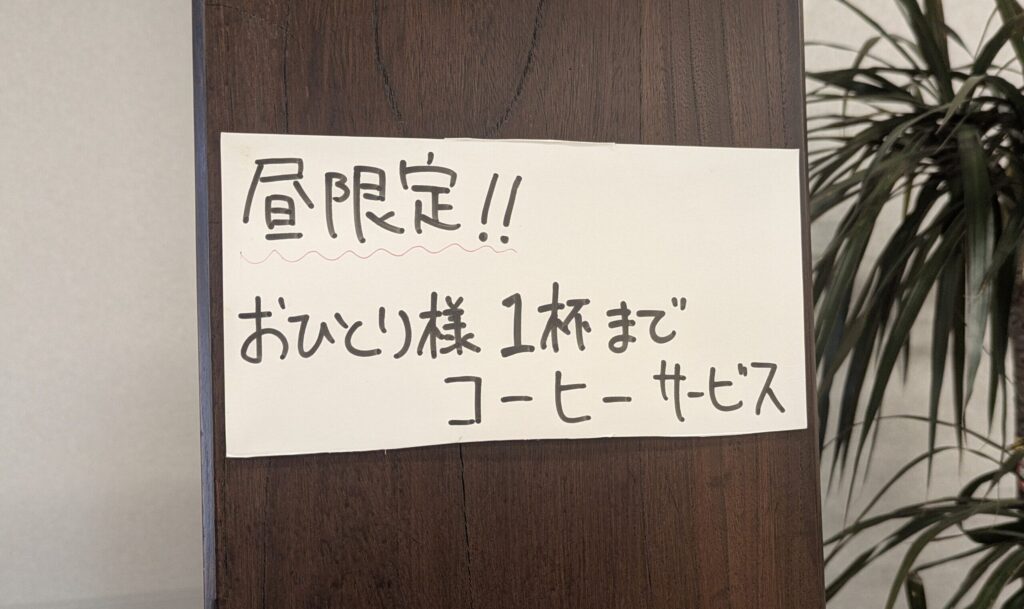 昼限定!!
おひとり様 1杯まで
コーヒーサービス